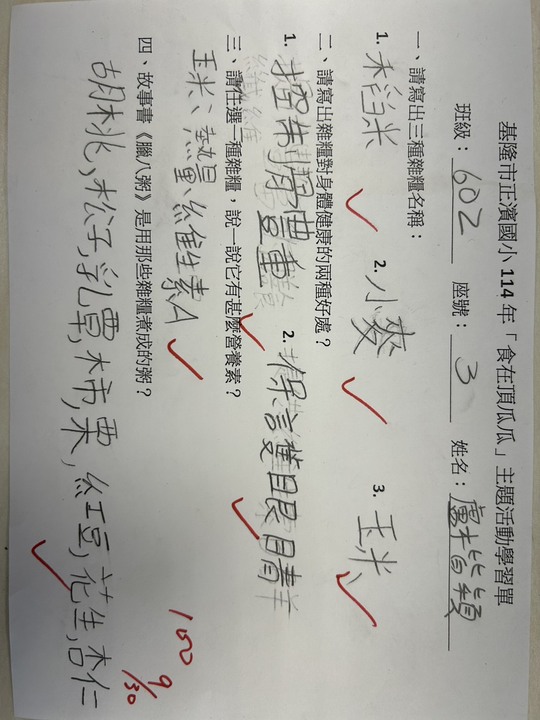 基隆市正濱國小 114 年「食在頂瓜瓜」主題活動學習單
班級：602 座號：3 姓名：盧皆穎
一、請寫出三種雜糧名稱：
1. 禾稻米 2. 小麥 3. 玉米
二、請寫出雜糧對身體健康的兩種好處？
1. 控制體重 2. 保護眼睛
三、請任選一種雜糧，說一說它有甚麼營養素？
玉米：熱量、維生素A
四、故事書《臘八粥》是用那些雜糧煮成的粥？
胡桃,松子,乳蕈,柿,栗,紅豆,花生,杏仁
100
9/30